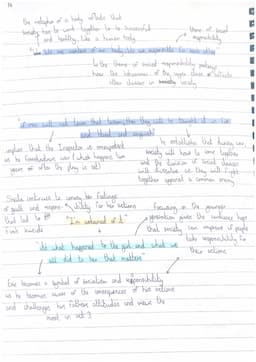 the metaphor of a body reflects that
society has to work together to be successful
and healthy, like a human body
theme of social
responsibility
"We are members of one body. We are responsible for each other"
how the of the upper class affects
other classes in society
"if men will not learn that lesson, then they will be taught it in fire
and blood and anguish"
implies that the Inspector is omnipotent
as he foreshadows war (which happens two
years after the play is set)
he establishes that during war,
society will have to come together
and the division of social classes
will dissolve as they will fight
together against a common enemy
Sheila continues to convey her feelings
of guilt and responsibility for her actions
that led to
Eva's suicide
"I'm ashamed of it"
Focusing on the younger
generation gives the audience hope
that society can improve if people
take responsibility for
their actions
"It's what happened to the girl and what we
all did to her that matters"
Eric becomes a symbol of socialism and responsibility
as he becomes aware of the consequences of his actions
and challenges his father's attitudes and views the
most in act 3